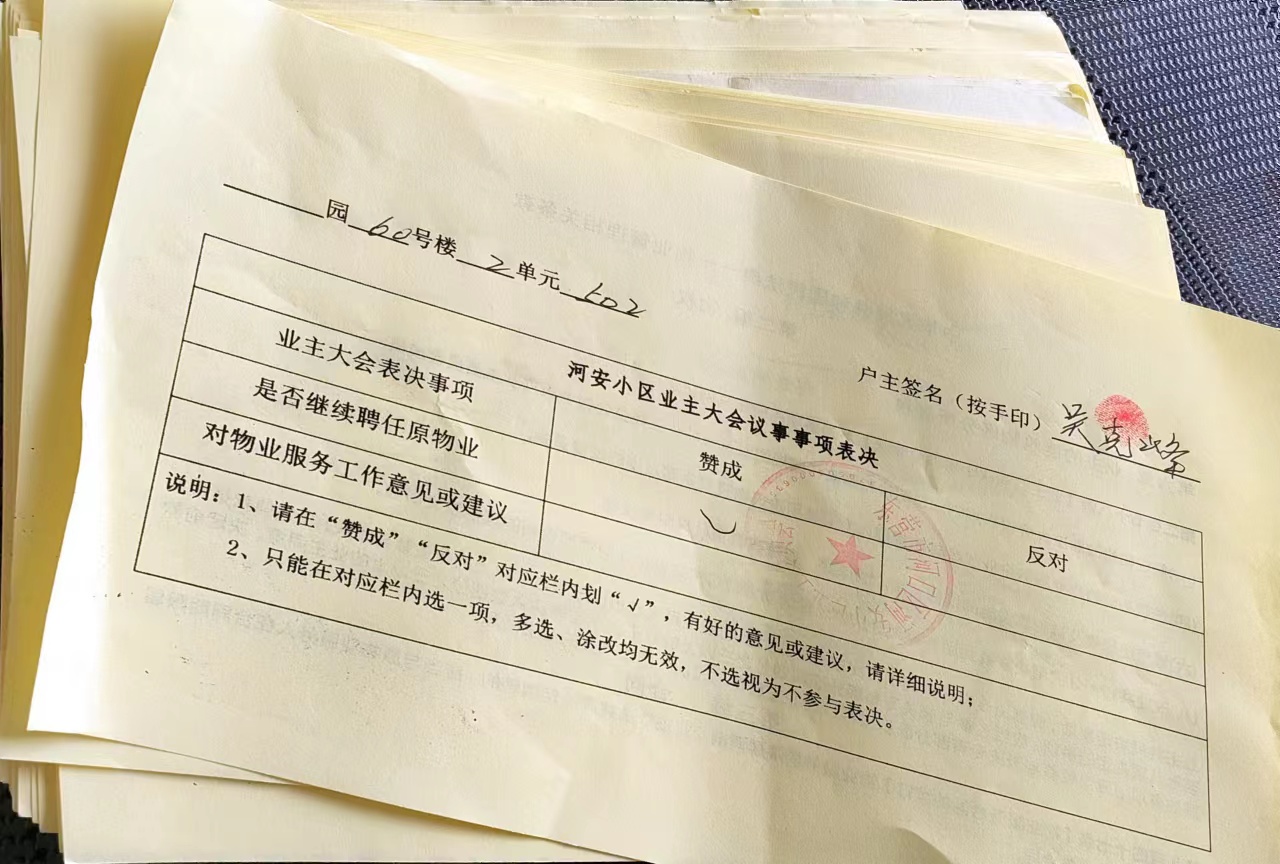 园 60号楼 2 单元 602
户主签名（按手印）吴克峰
河安小区业主大会议事事项表决
业主大会表决事项 赞成 反对
是否继续聘任原物业
对物业服务工作意见或建议
说明：1、请在“赞成”“反对”对应栏内划“√”，有好的意见或建议，请详细说明；
2、只能在对应栏内选一项，多选、涂改均无效，不选视为不参与表决。